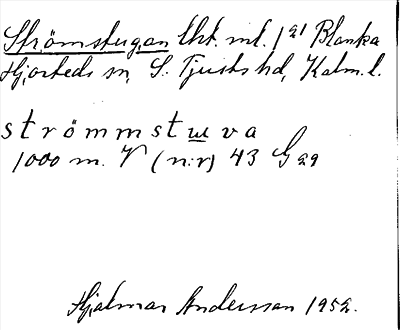 Strömstugan lht. ml. 1 21 Blanka
Hjorteds sn, S. Tjusts hd, Kalm. l.
strömmstuva
1000 m. V (n:r) 43 G a 9
Hjalmar Andersson 1952.